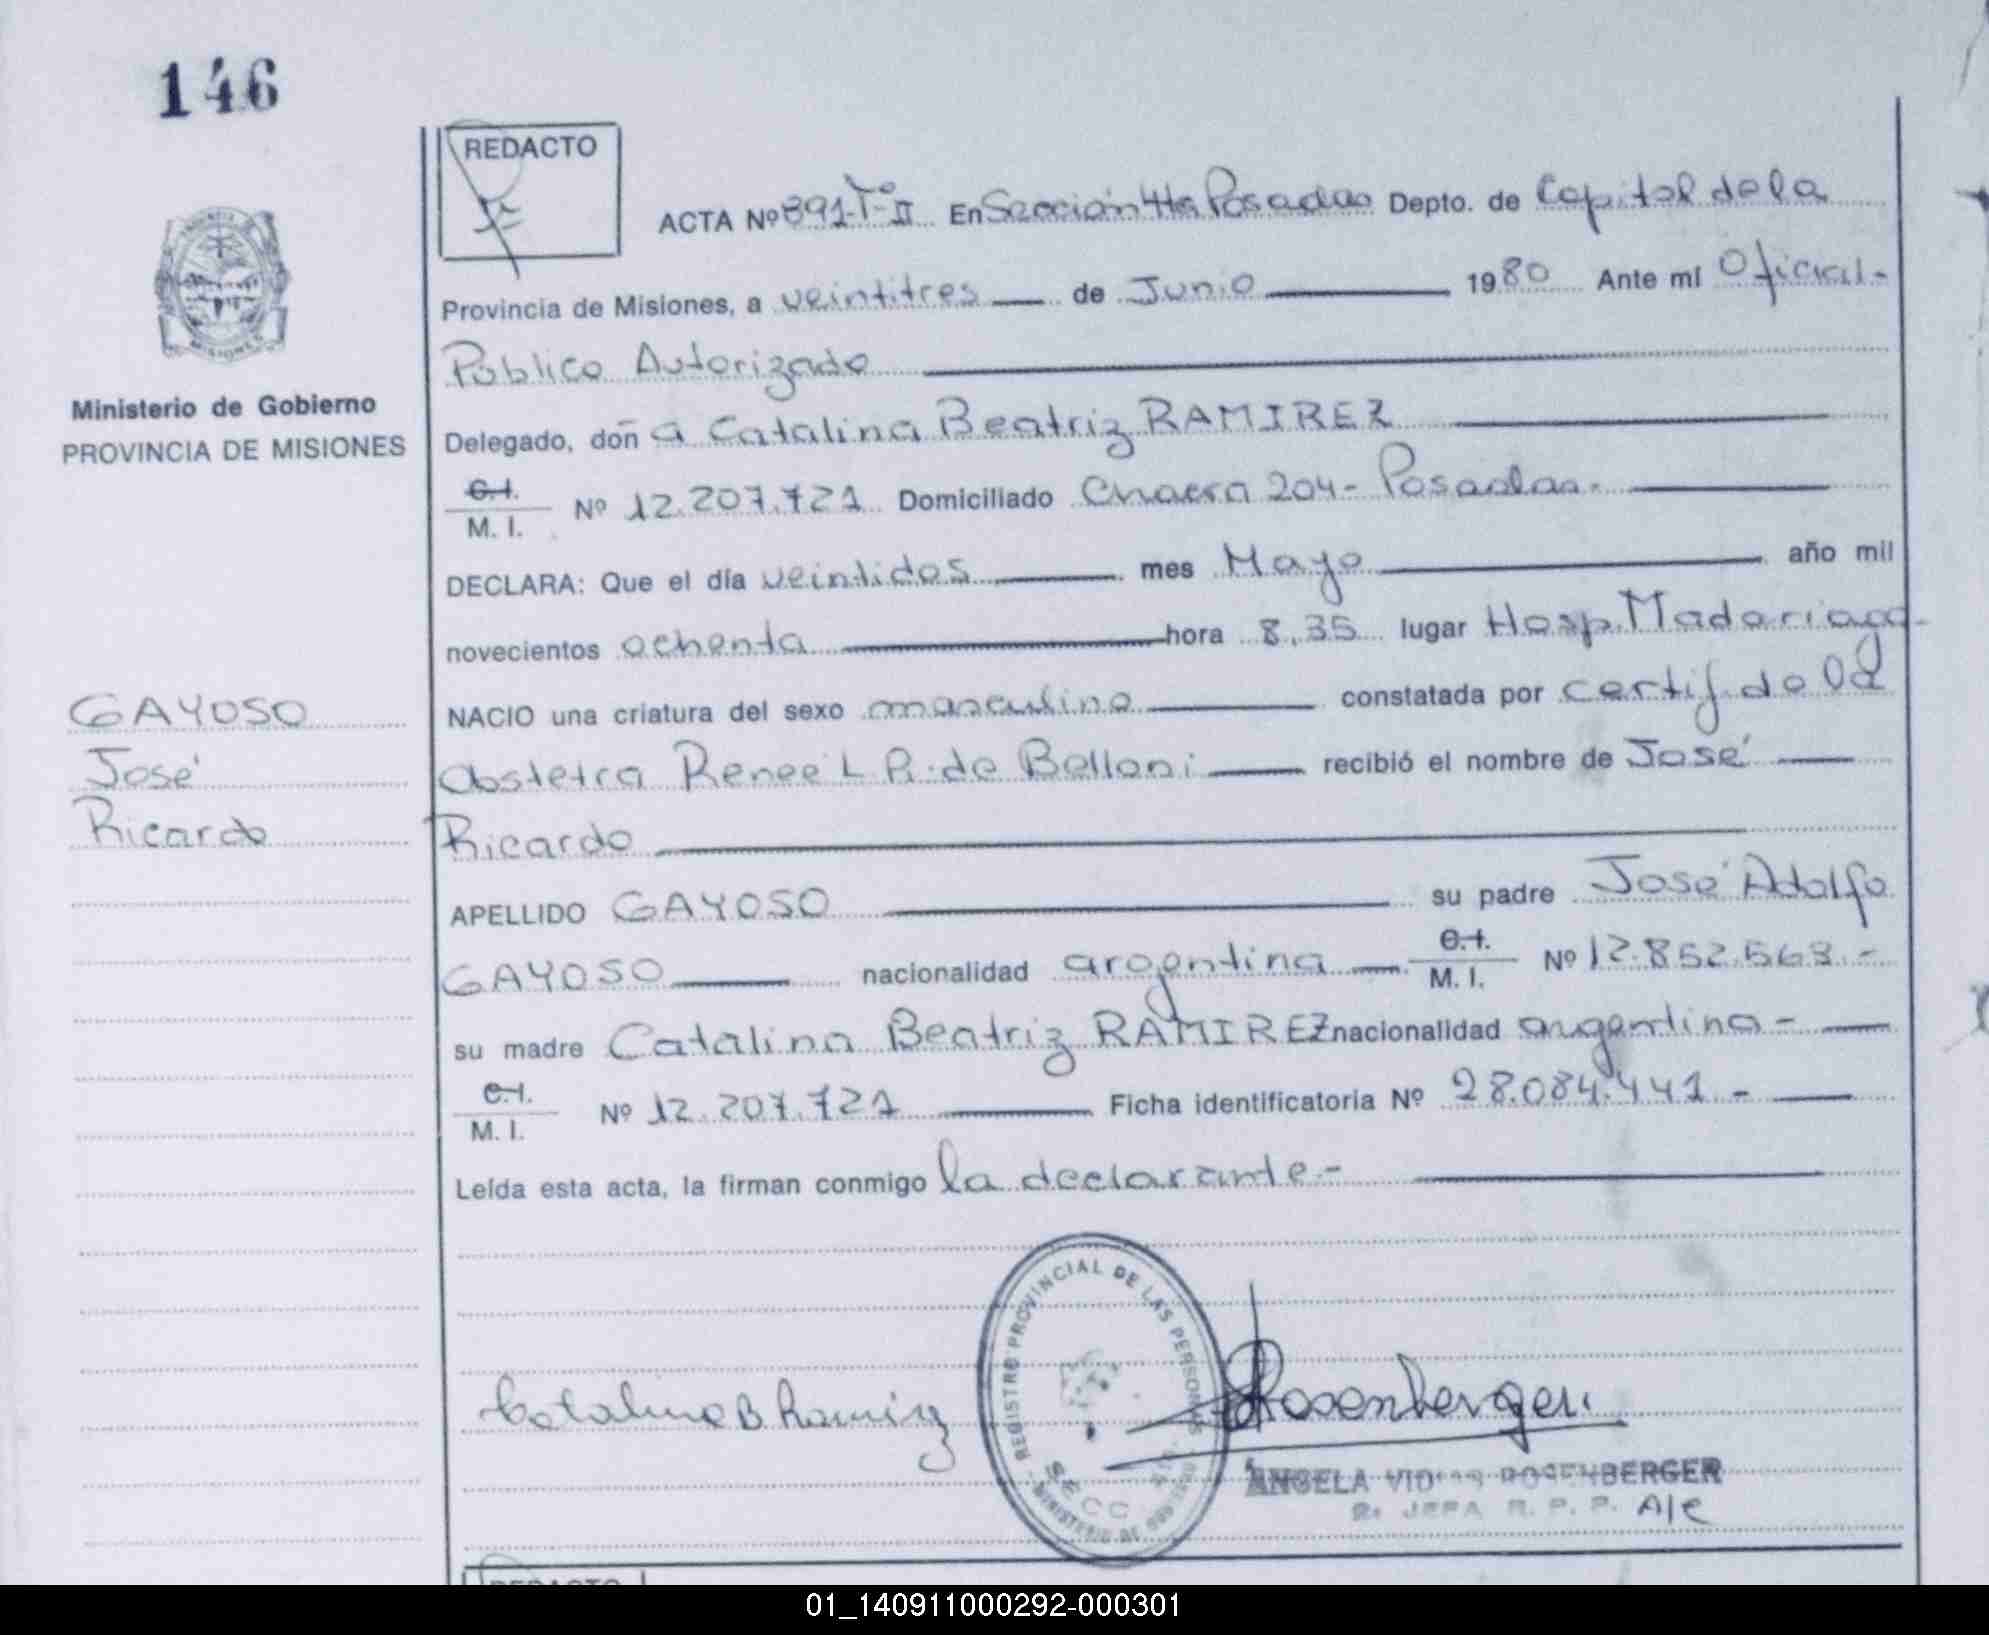 146
REDACTO
ACTA Nº 891-Tº-II En Sección 4ta Posadas Depto. de Capital de la
Provincia de Misiones, a veintitres de Junio 1980 Ante mí Oficial-
Público Autorizado
Ministerio de Gobierno
PROVINCIA DE MISIONES
Delegado, doña Catalina Beatriz RAMIREZ
C.I. M. I. Nº 12.207.721 Domiciliado Chacra 204- Posadas.-
DECLARA: Que el día veintidos mes Mayo año mil
novecientos ochenta hora 8,35 lugar Hosp. Madariaga-
GAYOSO
José
Ricardo
NACIO una criatura del sexo masculino constatada por certif. de la
Obstetra Renee L. R. de Belloni recibió el nombre de José
Ricardo
APELLIDO GAYOSO su padre José Adolfo
GAYOSO nacionalidad argentina C.I. M. I. Nº 12.852.563.-
su madre Catalina Beatriz RAMIREZ nacionalidad argentina-
C.I. M. I. Nº 12.207.721 Ficha identificatoria Nº 28.084.441.-
Leída esta acta, la firman conmigo la declarante.-
REGISTRO PROVINCIAL DE LAS PERSONAS
SECC
MINISTERIO DE
Catalina B Ramirez
Rosenberger
ANGELA ROSENBERGER
JEFA R. P. P. A/C
REDACTO
01_140911000292-000301